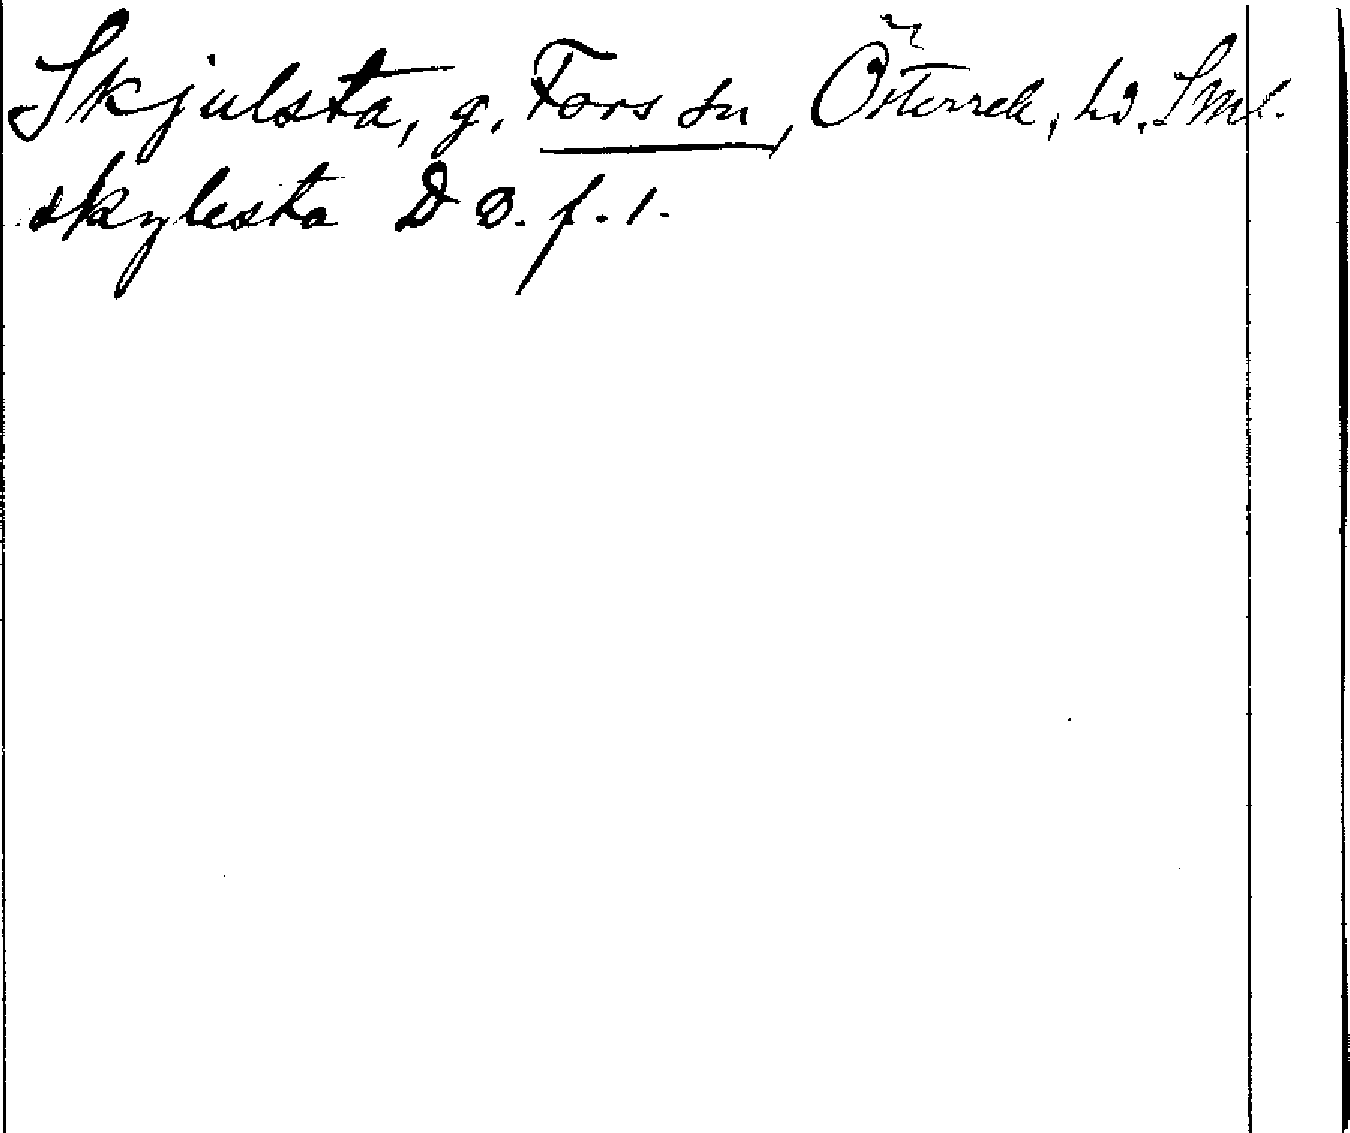 Skjulsta, g. Fors sn, Österrek, hd. Sml.
skylesta D Ø. f. 1.